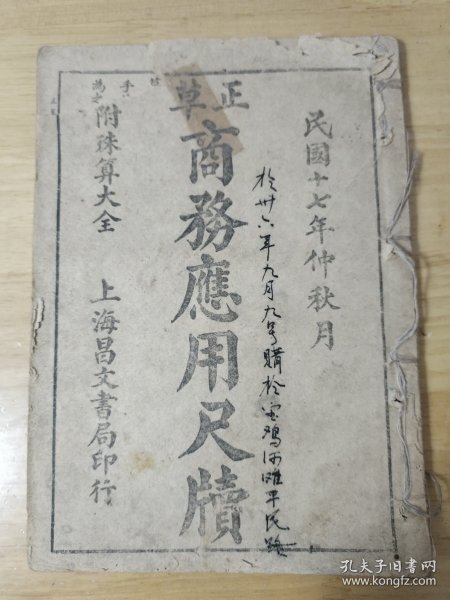 民國十七年仲秋月
於卅六年九月九号購於宝鸡河滩平民路
正草
商務應用尺牘
附珠算大全
上海昌文書局印行
孔夫子旧书网
www.kongfz.com